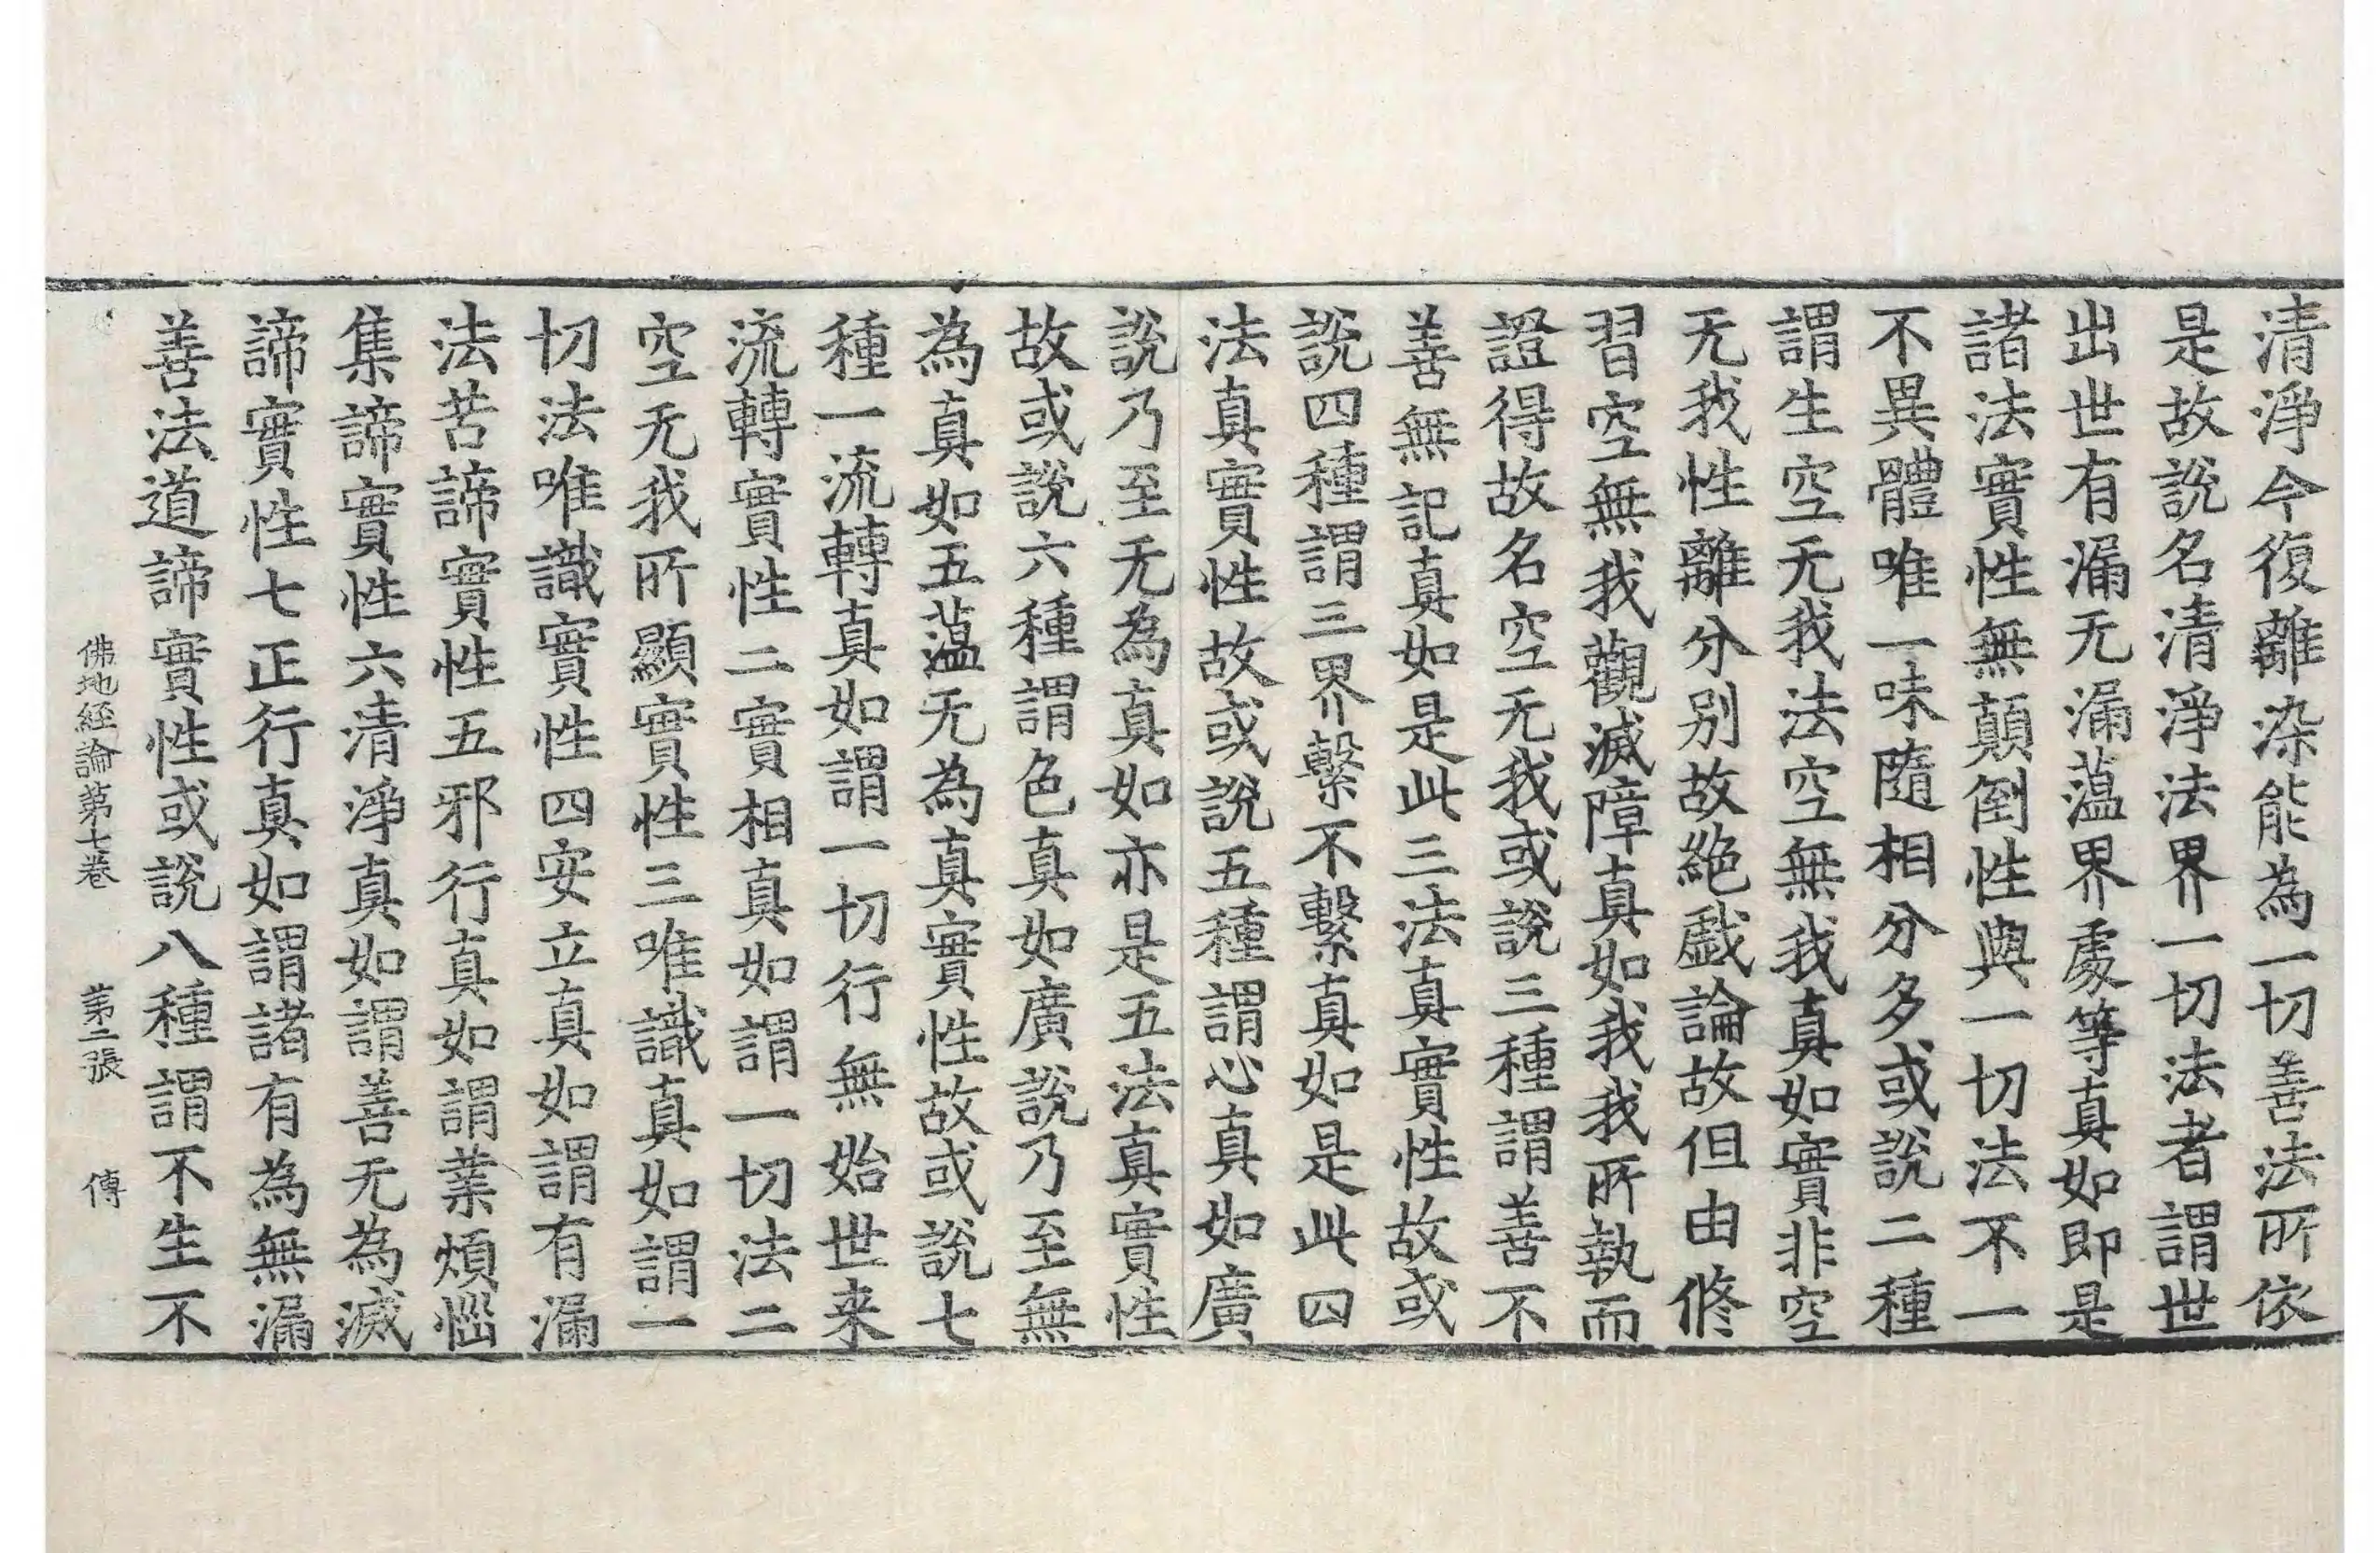 清淨今復離染能為一切善法所依
是故說名清淨法界一切法者謂世
出世有漏无漏蕰界處等真如即是
諸法實性無顛倒性與一切法不一
不異體唯一味隨相分多或說二種
謂生空无我法空無我真如實非空
无我性離分别故絕戲論故但由修
習空無我觀滅障真如我我所執而
證得故名空无我或說三種謂善不
善無記真如是此三法真實性故或
說四種謂三界繫不繫真如是此四
法真實性故或說五種謂心真如廣
說乃至无為真如亦是五法真實性
故或說六種謂色真如廣說乃至無
為真如五蕰无為真實性故或說七
種一流轉真如謂一切行無始世来
流轉實性二實相真如謂一切法二
空无我所顯實性三唯識真如謂一
切法唯識實性四安立真如謂有漏
法苦諦實性五邪行真如謂業煩惱
集諦實性六清淨真如謂善无為滅
諦實性七正行真如謂諸有為無漏
善法道諦實性或說八種謂不生不
佛地經論第七卷 第二張 傳